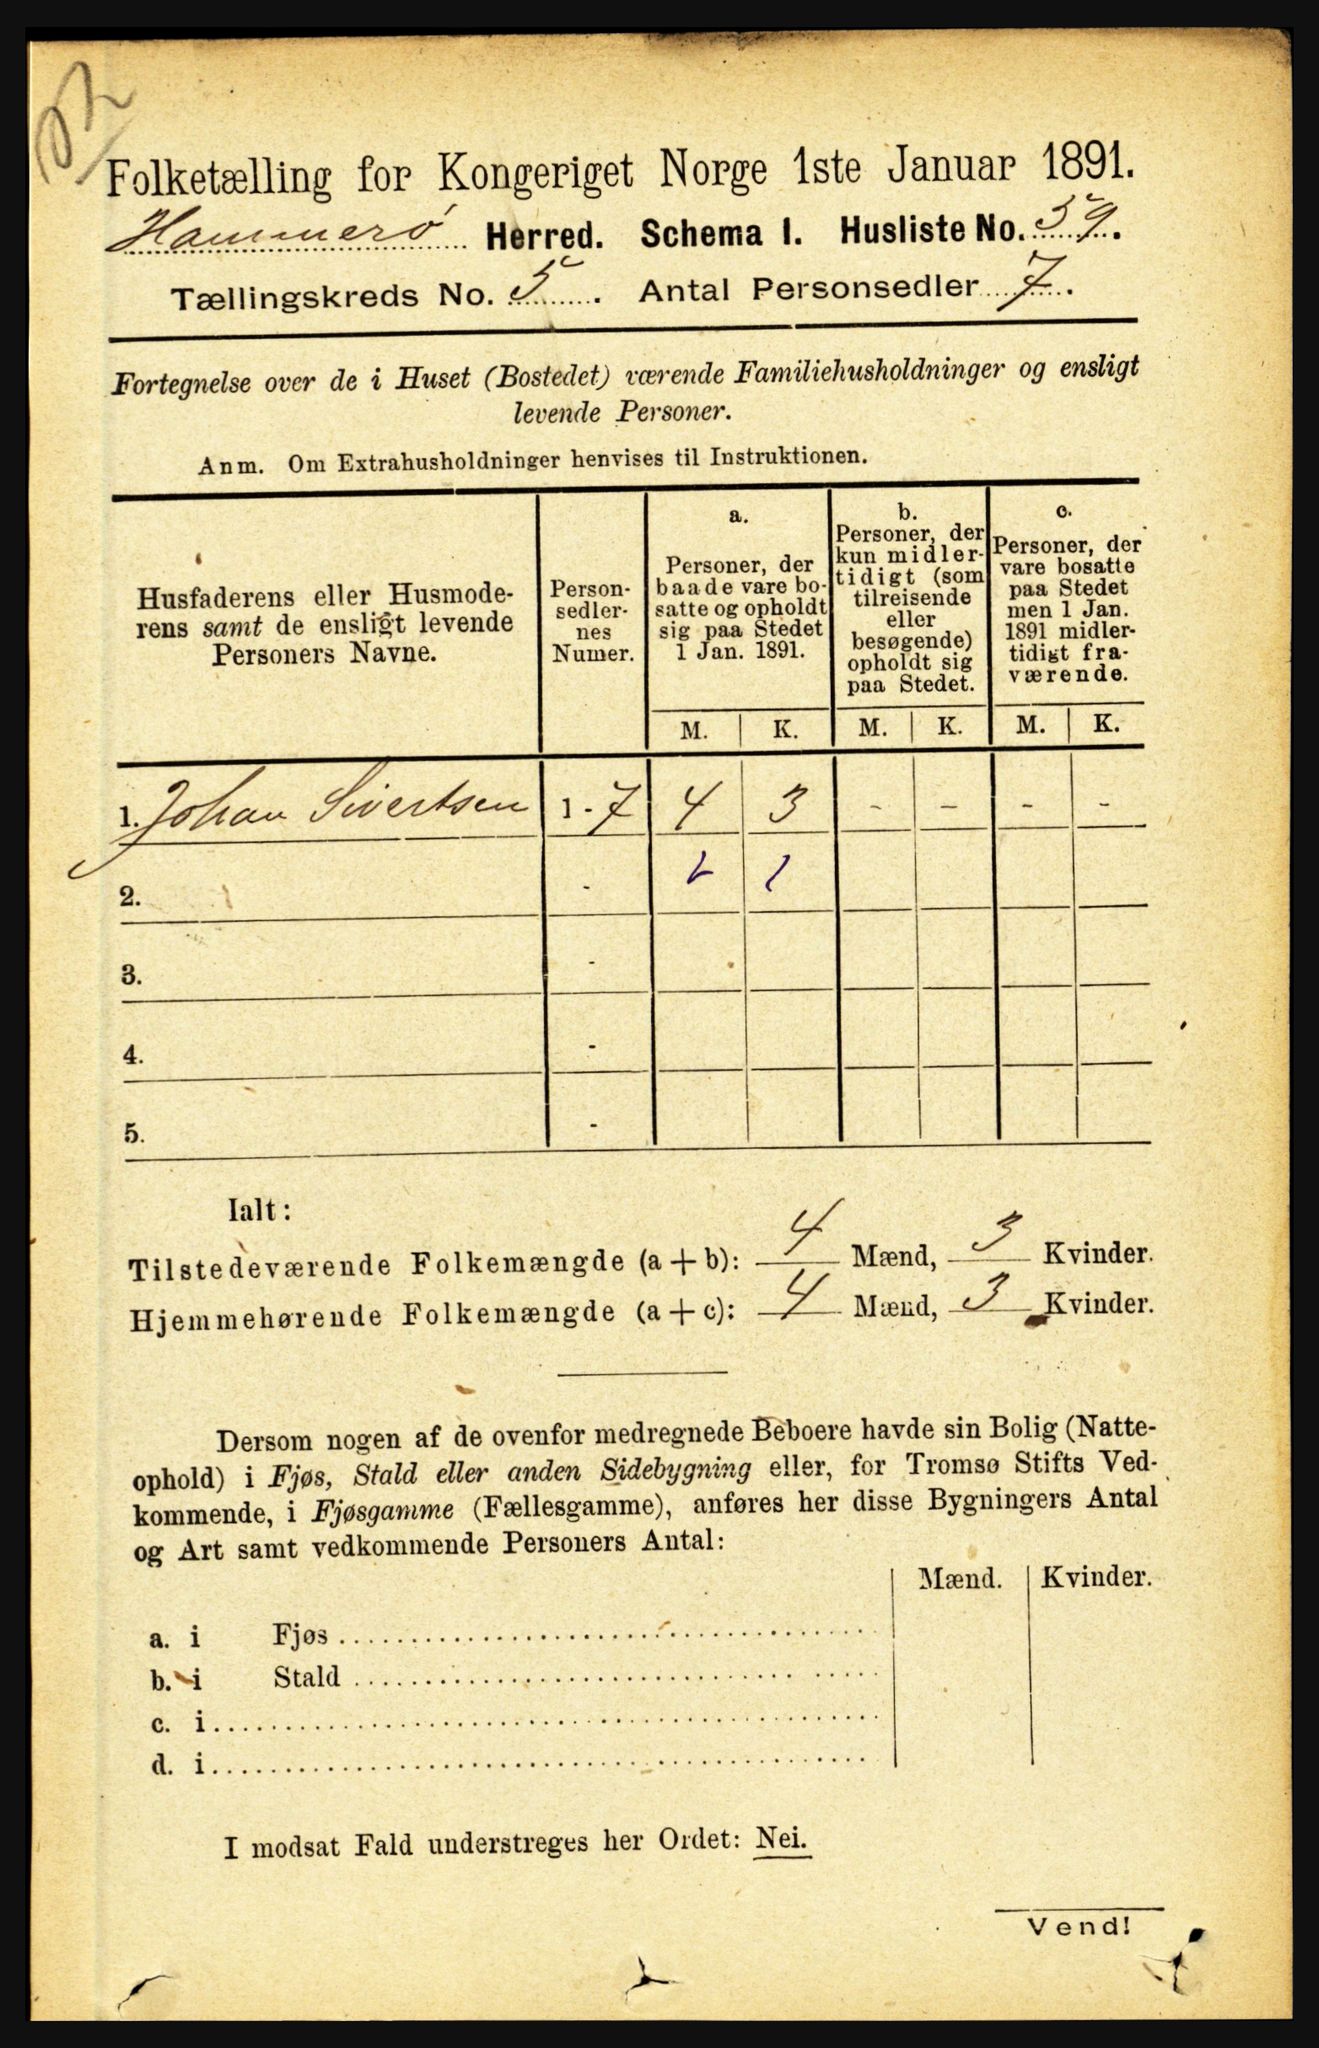 Folketælling for Kongeriget Norge 1ste Januar 1891.
Hammerø Herred. Schema I. Husliste No. 59.
Tællingskreds No. 5. Antal Personsedler 7.
Fortegnelse over de i Huset (Bostedet) værende Familiehusholdninger og ensligt
levende Personer.
Anm. Om Extrahusholdninger henvises til Instruktionen.
Husfaderens eller Husmode-
rens samt de ensligt levende
Personers Navne.
Person-
sedler-
nes
Numer.
a.
Personer, der
baade vare bo-
satte og opholdt
sig paa Stedet
1 Jan. 1891.
b.
Personer, der
kun midler-
tidigt (som
tilreisende
eller
besøgende)
opholdt sig
paa Stedet.
c.
Personer, der
vare bosatte
paa Stedet
men 1 Jan.
1891 midler-
tidigt fra-
værende.
M. K. M. K. M. K.
1. Johan Sivertsen 1-7 4 3 - - - -
2. - 1
3. -
4. -
5. -
Ialt:
Tilstedeværende Folkemængde (a+b): 4 Mænd, 3 Kvinder.
Hjemmehørende Folkemængde (a+c): 4 Mænd, 3 Kvinder.
Dersom nogen af de ovenfor medregnede Beboere havde sin Bolig (Natte-
ophold) i Fjøs, Stald eller anden Sidebygning eller, for Tromsø Stifts Ved-
kommende, i Fjøsgamme (Fællesgamme), anføres her disse Bygningers Antal
og Art samt vedkommende Personers Antal:
Mænd. Kvinder.
a. i Fjøs
b. i Stald
c. i
d. i
I modsat Fald understreges her Ordet: Nei.
Vend!